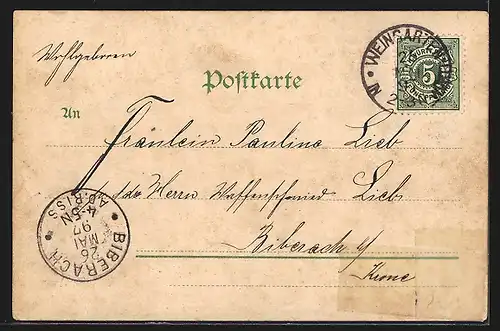 Wohlgeboren
Postkarte
WEINGARTEN
5
An
Fräulein Pauline Lieb
Herrn Waffenschmied Lieb
Biberach
Krone
BIBERACH
A.D.RISS
26 MAI 97
4-5N